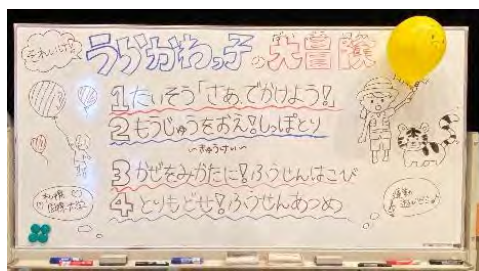 それいけ!
うらかわっ子の大冒険
1 たいそう「さあ、でかけよう!」
2 もうじゅうをおえ!しっぽとり
〜きゅうけい〜
3 かぜをみかたに!ふうせんはこび
4 とりもどせ!ふうせんあつめ
札幌国際大学